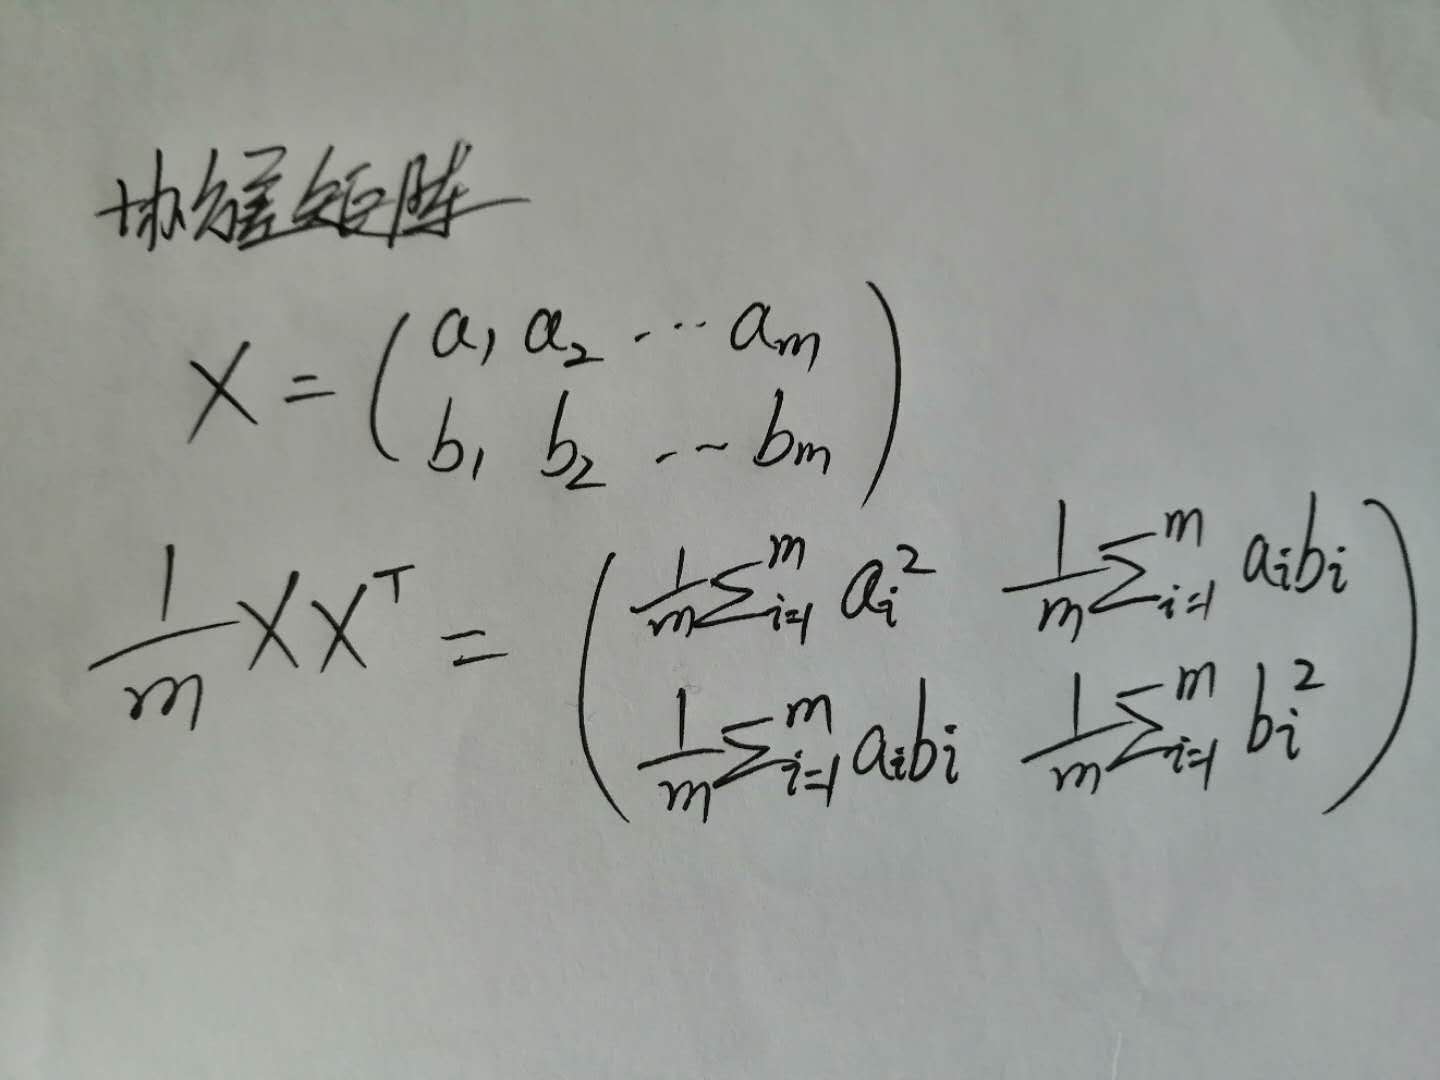 协方差矩阵
X = ( a₁ a₂ ⋯ aₘ
b₁ b₂ ⋯ bₘ )
1/m XXᵀ = ( 1/m ∑ᵢ₌₁ᵐ aᵢ² 1/m ∑ᵢ₌₁ᵐ aᵢbᵢ
1/m ∑ᵢ₌₁ᵐ aᵢbᵢ 1/m ∑ᵢ₌₁ᵐ bᵢ² )